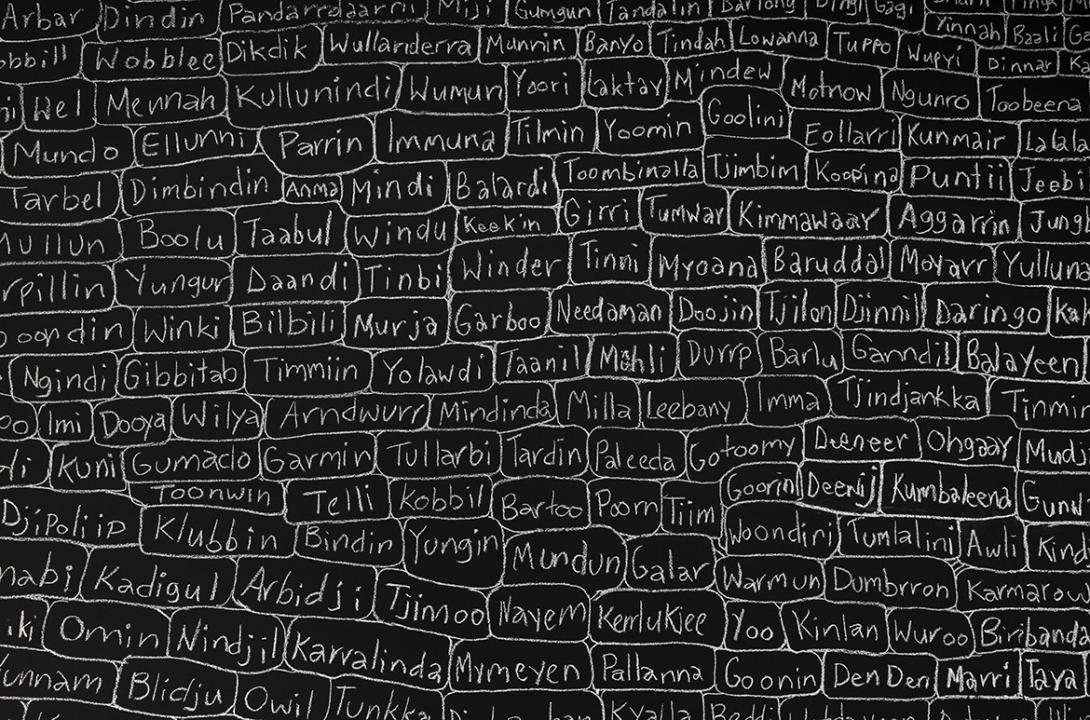 Arbar Dindin Pandarrdaarni Miji Gumgun Tandalin Barlong
Wobblee Dikdik Wullanderra Munnin Banyo Tindah Lowanna Tuppo Wupyi Yinnah Baali
Dinnar
Wel Mennah Kullunindi Wumun Yoori Laktay Mindew Motnow Ngunro Toobeena
Mundo Ellunni Parrin Immuna Tilmin Yoomin Goolini Eollarri Kunmair
Tarbel Dimbindin Anma Mindi Balardi Toombinalla Tjimbim Koopina Puntii Jeebi
Boolu Taabul Windu Keekin Girri Tumwar Kimmawaar Aggarrin
Yungur Daandi Tinbi Winder Tinni Myoana Baruddal Moyarr
Winki Bilbili Murja Garboo Needaman Doojin Tjilon Djinnil Daringo
Ngindi Gibbitab Timmiin Yolawdi Taanil Mahli Durrp Barlu Ganndil Balayeen
Imi Dooya Wilya Arndwurr Mindinda Milla Leebany Imma Tjindjarkka
Kuni Gumaclo Garmin Tullarbi Tardin Paleeda Gotoomy Deeneer Ohgaay
Toonwin Telli Kobbil Bartoo Poorn Tiim Goorin Deenij Kumbaleena
Djipoljip Klubbin Bindin Yungin Mundun Galar Woondiri Tumlalini Awli
Kadigul Arbidji Tjimoo Nayem Kerrlukjee Warmun Dumbrron
Omin Nindjil Karralinda Mymeyen Pallanna Yoo Kinlan Wuroo
Blidju Owil Tunkka Goonin Den Den Marri Taya
Kyalla